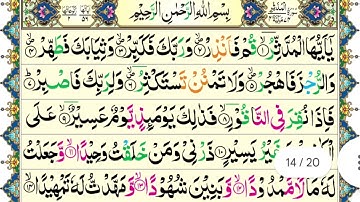 بِسْمِ اللّٰهِ الرَّحْمٰنِ الرَّحِيْمِ
يٰۤاَيُّهَا الْمُدَّثِّرُ ۙ﴿۱﴾ قُمْ فَاَنْذِرْ ۪ۙ﴿۲﴾ وَ رَبَّكَ فَكَبِّرْ ۪ۙ﴿۳﴾ وَ ثِيَابَكَ فَطَهِّرْ ۪ۙ﴿۴﴾
وَ الرُّجْزَ فَاهْجُرْ ۪ۙ﴿۵﴾ وَ لَا تَمْنُنْ تَسْتَكْثِرُ ۪ۙ﴿۶﴾ وَ لِرَبِّكَ فَاصْبِرْ ؕ﴿۷﴾
فَاِذَا نُقِرَ فِي النَّاقُوْرِ ۙ﴿۸﴾ فَذٰلِكَ يَوْمَئِذٍ يَّوْمٌ عَسِيْرٌ ۙ﴿۹﴾ عَلَى
غَيْرُ يَسِيْرٍ ﴿۱۰﴾ ذَرْنِيْ وَ مَنْ خَلَقْتُ وَحِيْدًا ۙ﴿۱۱﴾ وَّ جَعَلْتُ
14 / 20
لَهٗ مَالًا مَّمْدُوْدًا ۙ﴿۱۲﴾ وَّ بَنِيْنَ شُهُوْدًا ۙ﴿۱۳﴾ وَّ مَهَّدْتُّ لَهٗ تَمْهِيْدًا ۙ﴿۱۴﴾